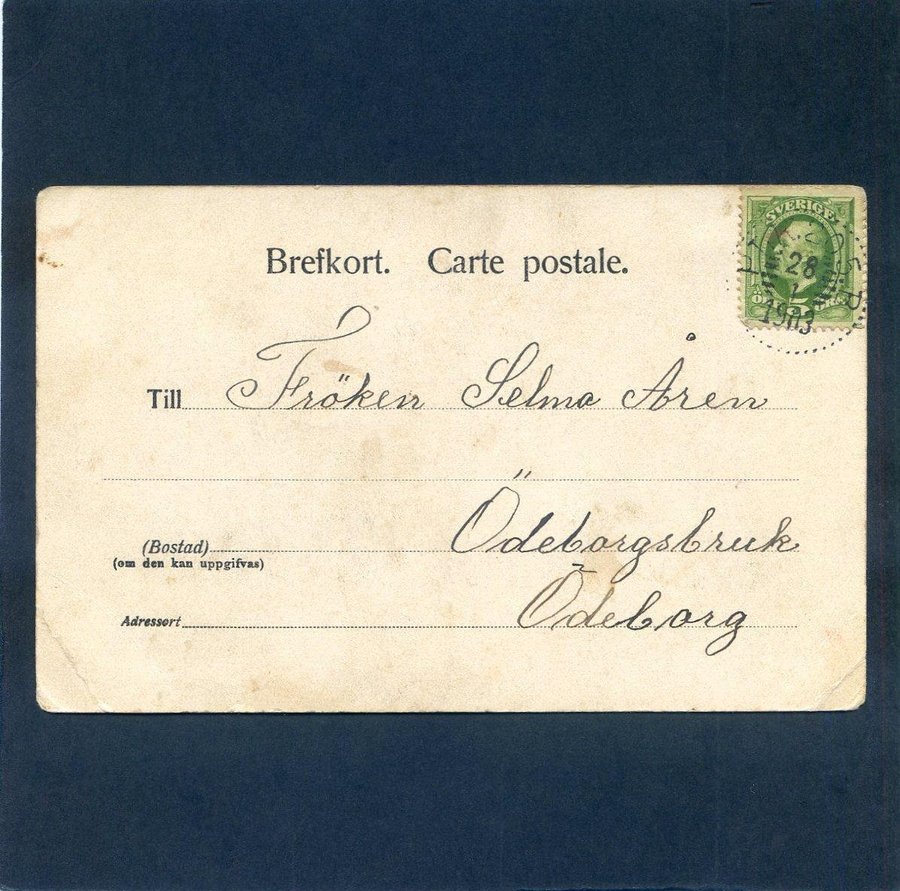 SVERIGE
28
1
1903
Brefkort. Carte postale.
Till Fröken Selma Åren
Ödeborgsbruk
(Bostad)
(om den kan uppgifvas)
Adressort Ödeborg